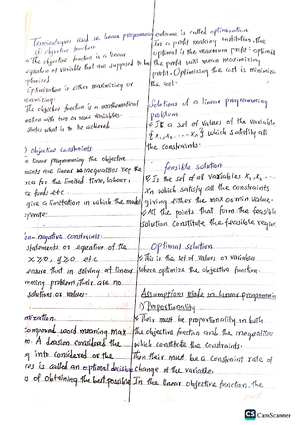 Terminologies used in linear programming
(i) objective function
- The objective function is a linear
equation of variable that are supposed to be
optimized.
Optimization is either maximizing or
minimizing.
The objective function is a mathematical
equation with two or more variables.
states what is to be achieved.
) Objective Constraints
In linear programming the objective
constraints are linear inequalities rep the
for the limited time, labour,
funds etc.
give a limitation in which the model
operate.
Non-negative constraints:
statements or equation of the
x ≥ 0, y ≥ 0 etc
ensure that in solving at linear
programming problem, their are no
solutions or values.
compound word meaning max
A decision considered the
into considered or the
is called an optimal decision
of obtaining the best possible
outcome is called optimization.
In a profit making institution, the
optimal is the maximum profit: optimiz
the profit will mean maximizing
profit. Optimizing the cost is minimize
the cost.
Solutions of a linear programming
problem
Is a set of values of the variable
{x₁, x₂, ... xₙ} which satisfy all
the constraints.
feasible solution
Is the set of all variables x₁, x₂ ...
xn which satisfy all the constraints
giving either the max or min value.
All the points that form the feasible
solution constitute the feasible region
Optimal solution
This is the set of values or variables
where optimize the objective function.
Assumptions made in linear programming
i) Proportionality
Their must be proportionality in both
the objective function and the inequalities
which constitute the constraints.
Then their must be a constraint rate of
change of the variables.
In the linear objective function, the
CS CamScanner